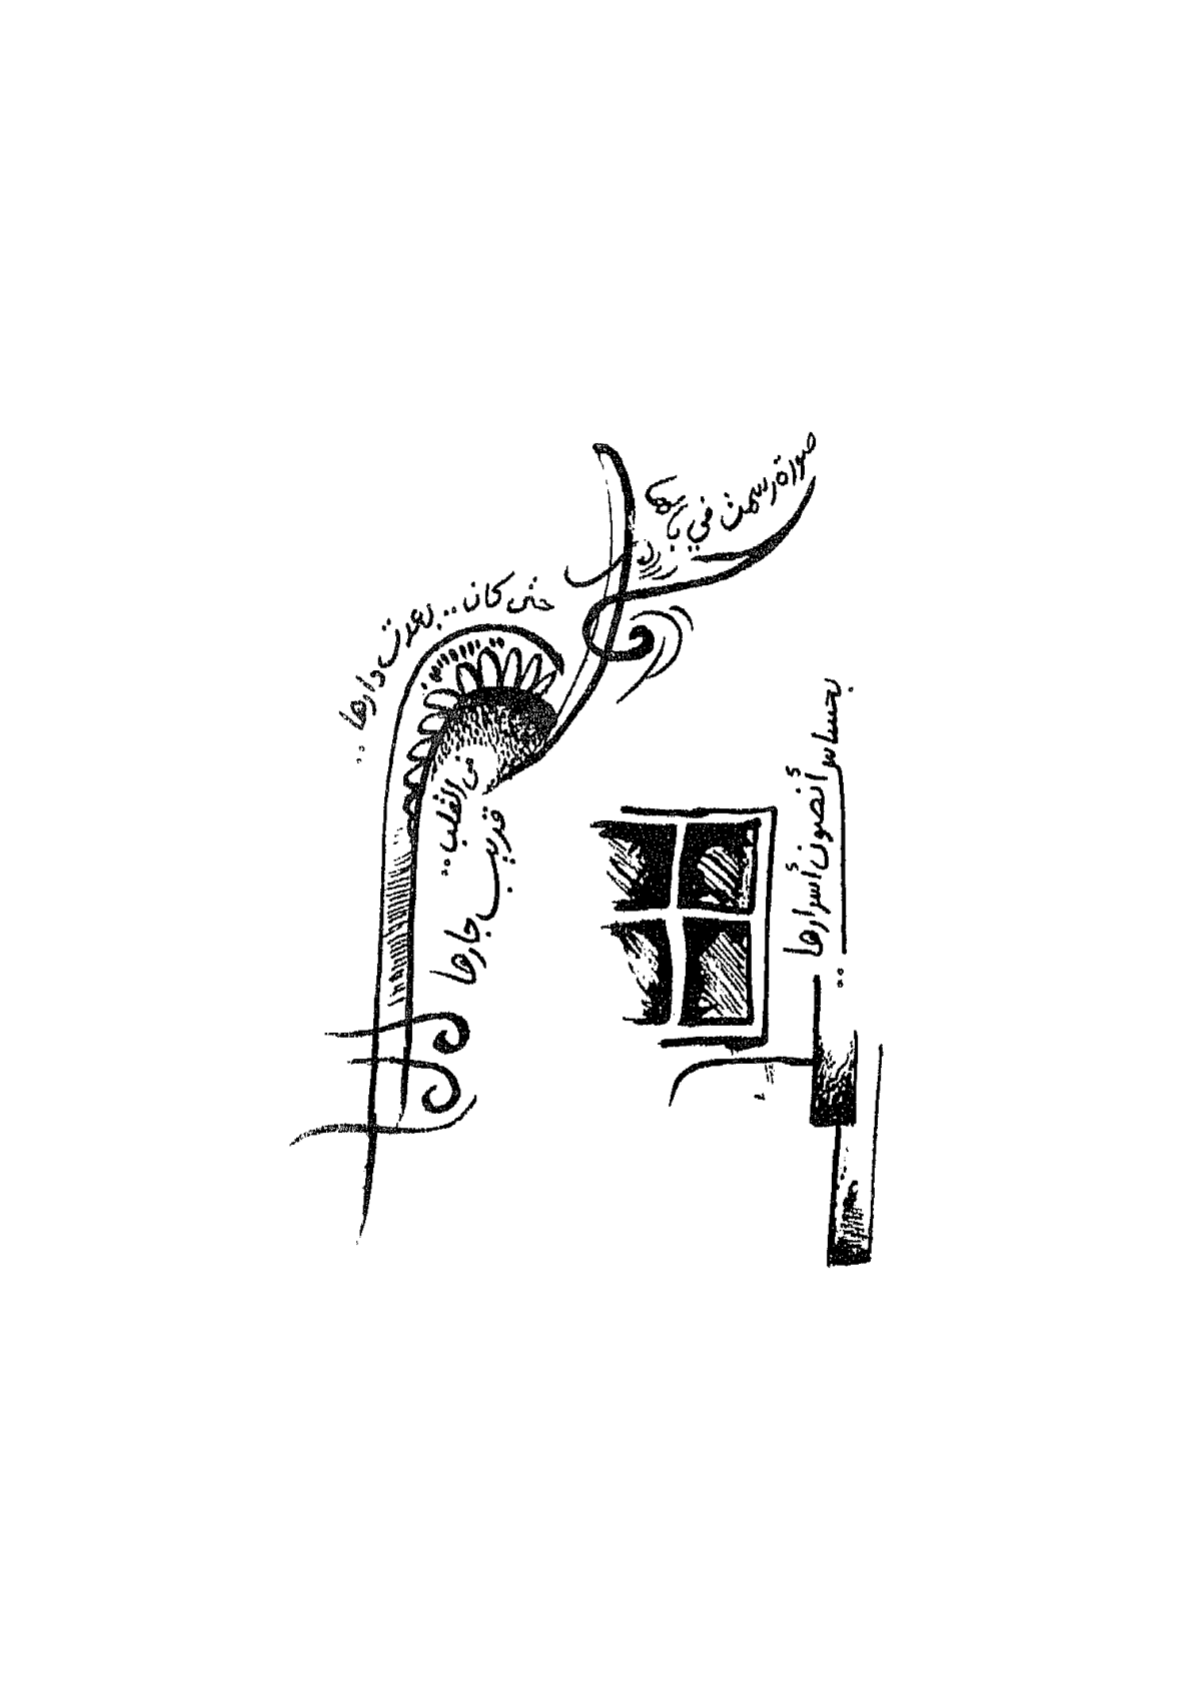 صورة رسمت في بالها
حتى كان.. بعدت دارها..
من القلب..
قريب جارها
بحساس أنصون أسرارها..